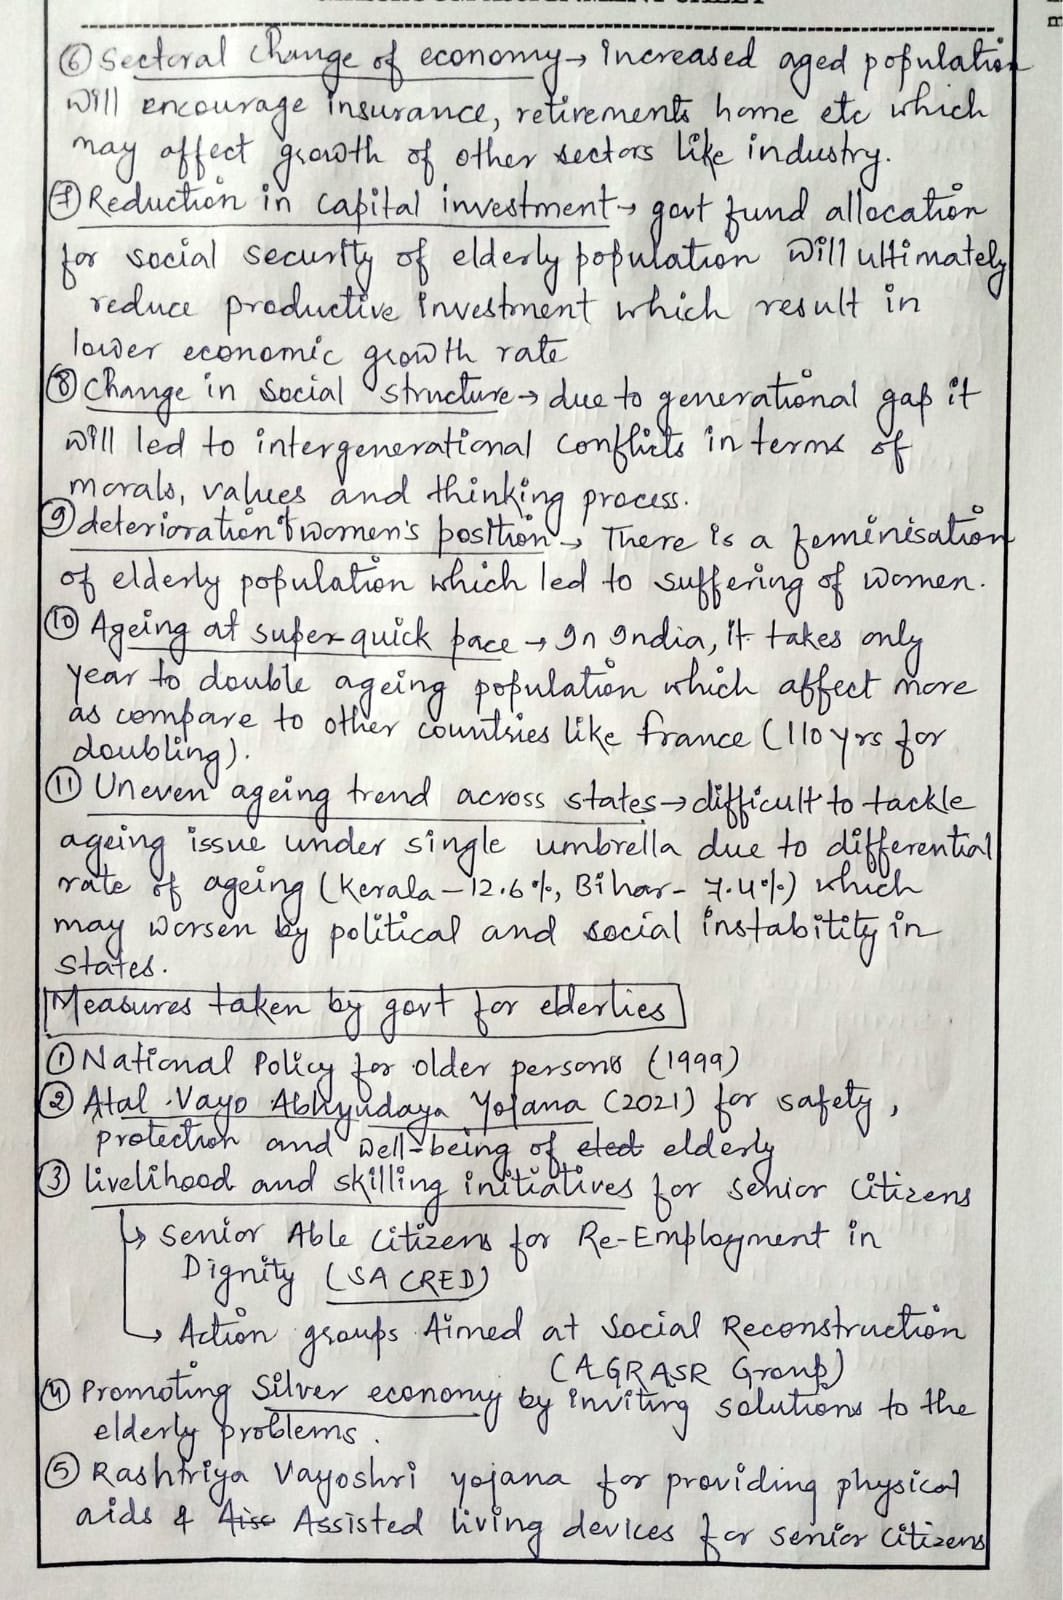 ⑥ Sectoral change of economy → Increased aged population
will encourage insurance, retirements home etc which
may affect growth of other sectors like industry.
⑦ Reduction in capital investment → govt fund allocation
for social security of elderly population will ultimately
reduce productive investment which result in
lower economic growth rate
⑧ change in social structure → due to generational gap it
will led to intergenerational conflicts in terms of
morals, values and thinking process.
⑨ deterioration of women's position → There is a feminisation
of elderly population which led to suffering of women.
⑩ Ageing at super-quick pace → In India, it takes only
year to double ageing population which affect more
as compare to other countries like france (110 yrs for
doubling).
⑪ Uneven ageing trend across states → difficult to tackle
ageing issue under single umbrella due to differential
rate of ageing (Kerala – 12.6%, Bihar - 7.4%) which
may worsen by political and social instability in
states.
Measures taken by govt for elderlies
① National Policy for older persons (1999)
② Atal Vayo Abhyudaya Yojana (2021) for safety,
protection and well-being of eled elderly
③ livelihood and skilling initiatives for senior citizens
↳ Senior Able Citizens for Re-Employment in
Dignity (SACRED)
↳ Action groups Aimed at Social Reconstruction
(AGRASR Group)
④ Promoting Silver economy by inviting solutions to the
elderly problems.
⑤ Rashtriya Vayoshri yojana for providing physical
aids & Aiss Assisted living devices for senior citizens